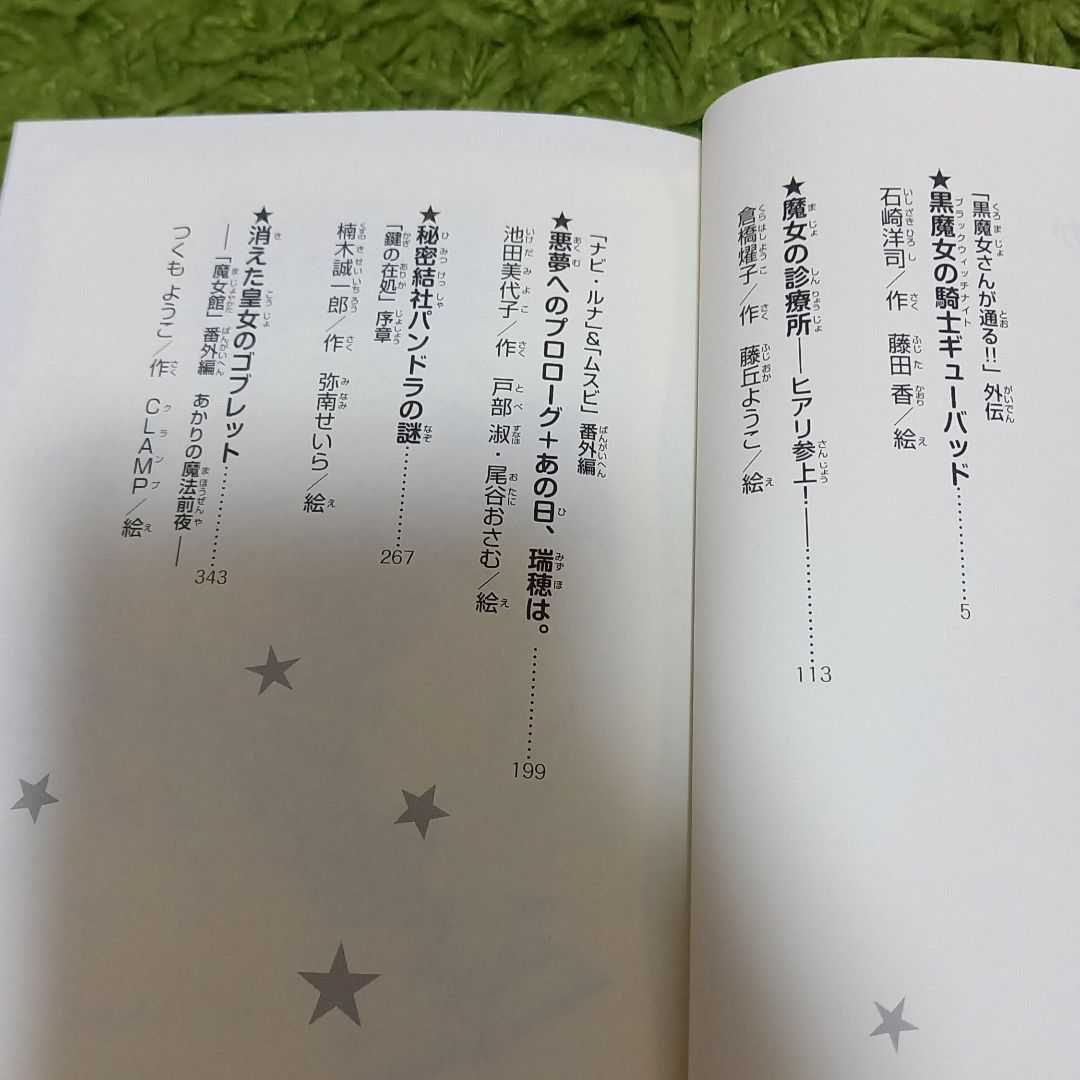 「黒魔女さんが通る!!」外伝
★黒魔女の騎士ギューバッド…………5
石崎洋司／作 藤田 香／絵
★魔女の診療所——ヒアリ参上！——…………113
倉橋燿子／作 藤丘ようこ／絵
「ナビ・ルナ」&「ムスビ」番外編
★悪夢へのプロローグ+あの日、瑞穂は。…………199
池田美代子／作 戸部 淑・尾谷おさむ／絵
★秘密結社パンドラの謎…………267
「鍵の在処」序章
楠木誠一郎／作 弥南せいら／絵
★消えた皇女のゴブレット…………343
——「魔女館」番外編 あかりの魔法前夜——
つくも ようこ／作 CLAMP／絵